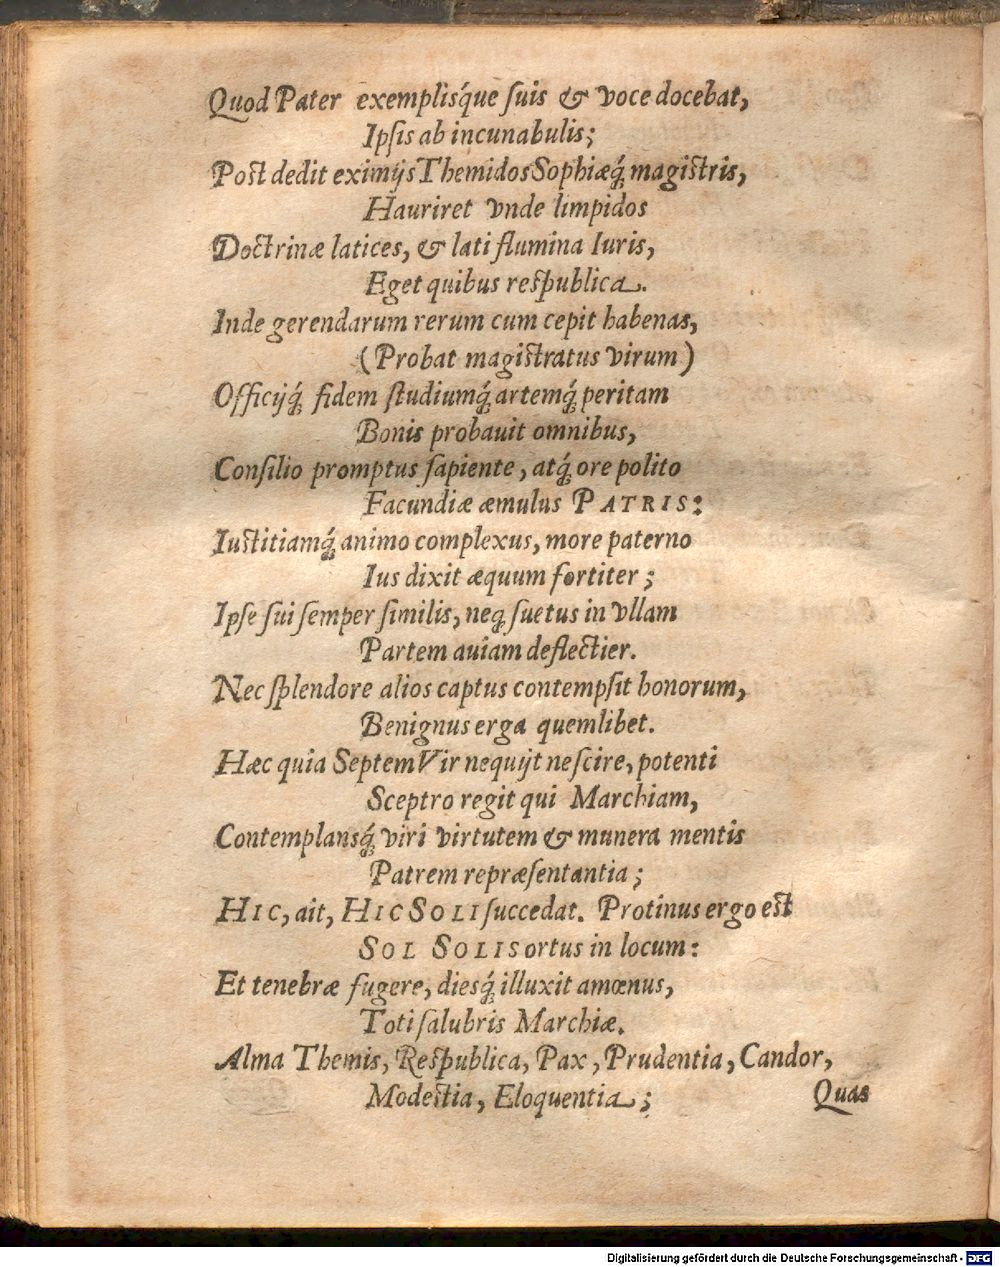 Quod Pater exemplis'que suis & voce docebat,
Ipsis ab incunabulis;
Post dedit eximijs Themidos Sophiæq́; magistris,
Hauriret vnde limpidos
Doctrinæ latices, & lati flumina Iuris,
Eget quibus respublica.
Inde gerendarum rerum cum cepit habenas,
(Probat magistratus virum)
Officijq́; fidem studiumq́; artemq́; peritam
Bonis probauit omnibus,
Consilio promptus sapiente, atq́; ore polito
Facundiæ æmulus PATRIS:
Iustitiamq́; animo complexus, more paterno
Ius dixit æquum fortiter;
Ipse sui semper similis, neq; suetus in vllam
Partem auiam deflectier.
Nec splendore alios captus contempsit honorum,
Benignus erga quemlibet.
Hæc quia SeptemVir nequijt nescire, potenti
Sceptro regit qui Marchiam,
Contemplansq́; viri virtutem & munera mentis
Patrem repræsentantia;
HIC, ait, HIC SOLI succedat. Protinus ergo est
SOL SOLIS ortus in locum:
Et tenebræ fugere, diesq́; illuxit amœnus,
Toti salubris Marchiæ.
Alma Themis, Respublica, Pax, Prudentia, Candor,
Modestia, Eloquentia;
Quas
Digitalisierung gefördert durch die Deutsche Forschungsgemeinschaft - DFG